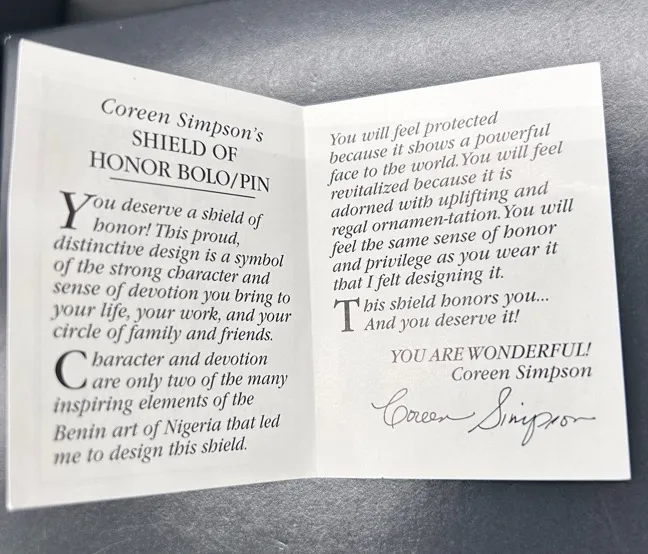 Coreen Simpson's
SHIELD OF
HONOR BOLO/PIN
You deserve a shield of
honor! This proud,
distinctive design is a symbol
of the strong character and
sense of devotion you bring to
your life, your work, and your
circle of family and friends.
Character and devotion
are only two of the many
inspiring elements of the
Benin art of Nigeria that led
me to design this shield.
You will feel protected
because it shows a powerful
face to the world. You will feel
revitalized because it is
adorned with uplifting and
regal ornamen-tation. You will
feel the same sense of honor
and privilege as you wear it
that I felt designing it.
This shield honors you...
And you deserve it!
YOU ARE WONDERFUL!
Coreen Simpson
Coreen Simpson